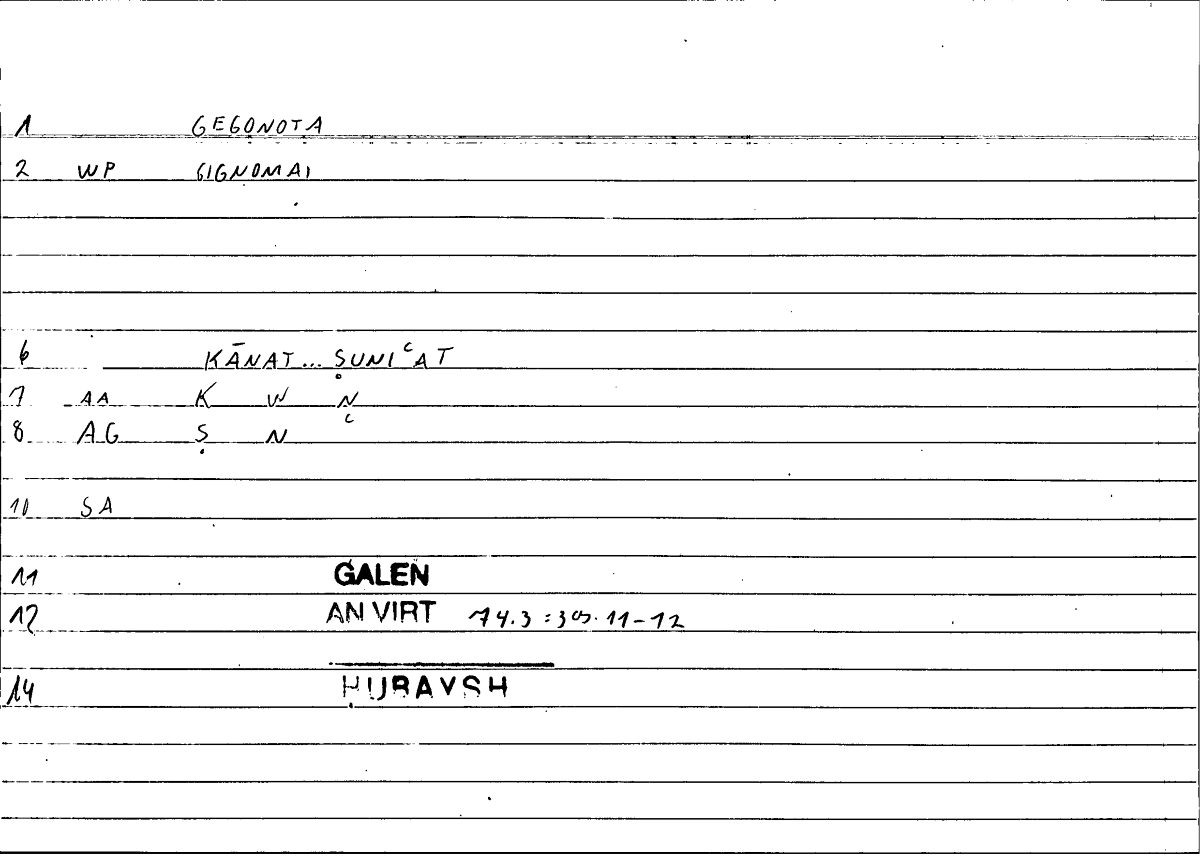 1 GEGONOTA
2 WP GIGNOMAI
6 KĀNAT... ṢUNIᶜAT
7 AA K W N
8 AG Ṣ N ᶜ
10 SA
11 GALEN
12 AN VIRT 74.3 : 305.11-12
14 ḤUBAYSH